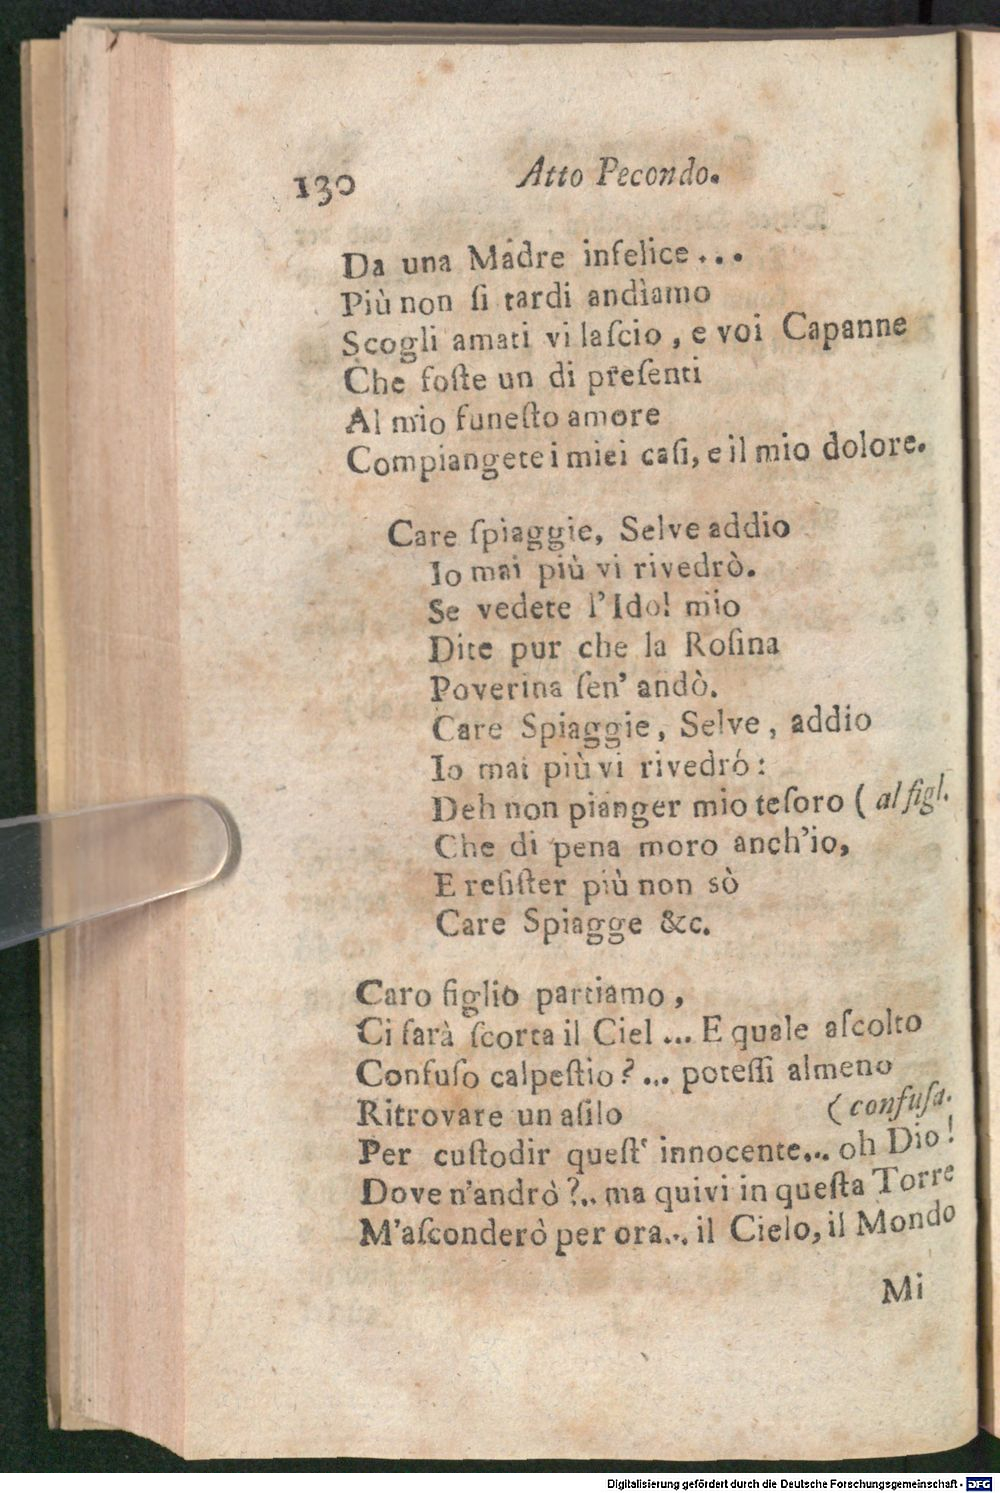 130 Atto Pecondo.
Da una Madre infelice...
Più non ſi tardi andìamo
Scogli amati vi laſcio, e voi Capanne
Che foſte un di preſenti
Al mio funeſto amore
Compiangete i miei caſi, e il mio dolore.
Care ſpiaggie, Selve addio
Io mai più vi rivedrò.
Se vedete l'Idol mio
Dite pur che la Roſina
Poverina ſen' andò.
Care Spiaggie, Selve, addio
Io mai più vi rivedró:
Deh non pianger mio teſoro ( al figl.
Che di pena moro anch'io,
E reſiſter più non sò
Care Spiagge &c.
Caro figlio partiamo,
Ci farà ſcorta il Ciel ... E quale aſcolto
Confuſo calpeſtio? ... poteſſi almeno
Ritrovare un aſilo ( confuſa.
Per cuſtodir queſt' innocente... oh Dio!
Dove n'andrò?.. ma quivi in queſta Torre
M'aſconderò per ora... il Cielo, il Mondo
Mi
Digitalisierung gefördert durch die Deutsche Forschungsgemeinschaft - DFG